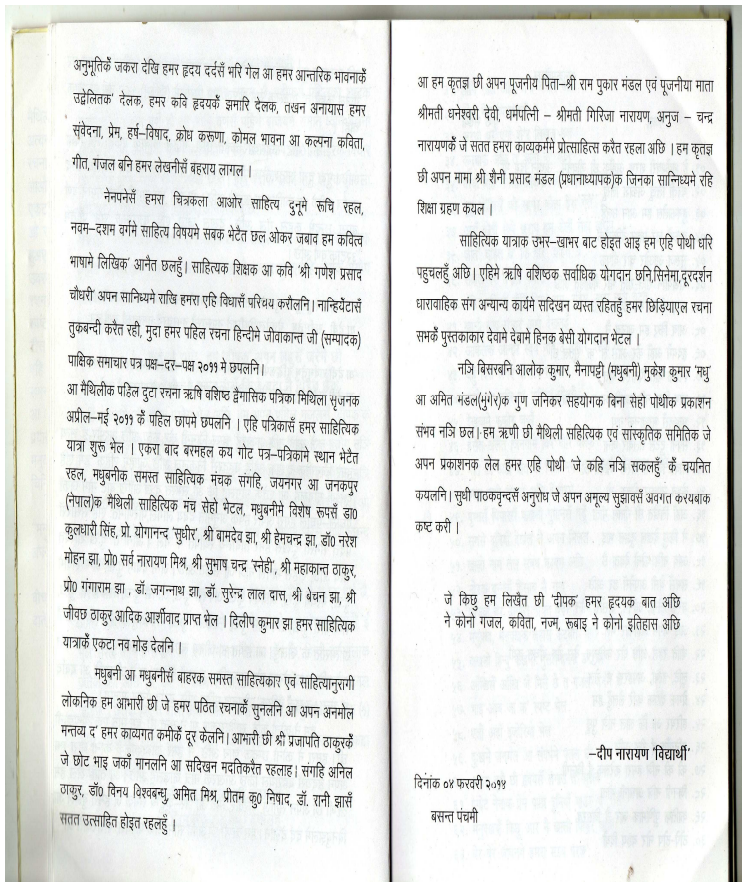 अनुभूतिकेँ जकरा देखि हमर हृदय दर्दसँ भरि गेल आ हमर आन्तरिक भावनाकेँ
उद्वेलितक' देलक, हमर कवि हृदयकेँ झमारि देलक, तखन अनायास हमर
संवेदना, प्रेम, हर्ष-विषाद, क्रोध करूणा, कोमल भावना आ कल्पना कविता,
गीत, गजल बनि हमर लेखनीसँ बहराय लागल ।
नेनपनेसँ हमरा चित्रकला आओर साहित्य दुनूमे रूचि रहल,
नवम-दशम वर्गमे साहित्य विषयमे सबक भेटैत छल ओकर जबाव हम कवित्व
भाषामे लिखिक' आनैत छलहुँ। साहित्यक शिक्षक आ कवि 'श्री गणेश प्रसाद
चौधरी' अपन सानिध्यमे राखि हमरा एहि विधासँ परिचय करौलनि। नान्हियेंटासँ
तुकबन्दी करैत रही, मुदा हमर पहिल रचना हिन्दीमे जीवाकान्त जी (सम्पादक)
पाक्षिक समाचार पत्र पक्ष-दर-पक्ष २०११ मे छपलनि।
आ मैथिलीक पहिल दुटा रचना ऋषि वशिष्ठ द्वैमासिक पत्रिका मिथिला सृजनक
अप्रील-मई २०११ केँ पहिल छापमे छपलनि । एहि पत्रिकासँ हमर साहित्यिक
यात्रा शुरू भेल । एकरा बाद बरमहल कय गोट पत्र-पत्रिकामे स्थान भेटैत
रहल, मधुबनीक समस्त साहित्यिक मंचक संगहि, जयनगर आ जनकपुर
(नेपाल)क मैथिली साहित्यिक मंच सेहो भेटल, मधुबनीमे विशेष रूपसँ डा०
कुलधारी सिंह, प्रो. योगानन्द 'सुधीर', श्री बामदेव झा, श्री हेमचन्द्र झा, डॉ० नरेश
मोहन झा, प्रो० सर्व नारायण मिश्र, श्री सुभाष चन्द्र 'स्नेही', श्री महाकान्त ठाकुर,
प्रो० गंगाराम झा , डॉ. जगन्नाथ झा, डॉ. सुरेन्द्र लाल दास, श्री बेचन झा, श्री
जीवछ ठाकुर आदिक आर्शीवाद प्राप्त भेल । दिलीप कुमार झा हमर साहित्यिक
यात्राकेँ एकटा नव मोड़ देलनि ।
मधुबनी आ मधुबनीसँ बाहरक समस्त साहित्यकार एवं साहित्यानुरागी
लोकनिक हम आभारी छी जे हमर पठित रचनाकेँ सुनलनि आ अपन अनमोल
मन्तव्य द' हमर काव्यगत कमीकेँ दूर केलनि। आभारी छी श्री प्रजापति ठाकुरकेँ
जे छोट भाइ जकाँ मानलनि आ सदिखन मदतिकरैत रहलाह। संगहि अनिल
ठाकुर, डॉ० विनय विश्वबन्धु, अमित मिश्र, प्रीतम कु० निषाद, डॉ. रानी झासँ
सतत उत्साहित होइत रहलहुँ ।
आ हम कृतज्ञ छी अपन पूजनीय पिता-श्री राम पुकार मंडल एवं पूजनीया माता
श्रीमती धनेश्वरी देवी, धर्मपत्नि - श्रीमती गिरिजा नारायण, अनुज - चन्द्र
नारायणकेँ जे सतत हमरा काव्यकर्ममे प्रोत्साहित करैत रहला अछि । हम कृतज्ञ
छी अपन मामा श्री शैनी प्रसाद मंडल (प्रधानाध्यापक)क जिनका सान्निध्यमे रहि
शिक्षा ग्रहण कयल ।
साहित्यिक यात्राक उभर-खाभर बाट होइत आइ हम एहि पोथी धरि
पहुचलहुँ अछि। एहिमे ऋषि वशिष्ठक सर्वाधिक योगदान छनि,सिनेमा,दूरदर्शन
धारावाहिक संग अन्यान्य कार्यमे सदिखन व्यस्त रहितहुँ हमर छिड़ियाएल रचना
सभकेँ पुस्तकाकार देवामे देबामे हिनक बेसी योगदान भेटल ।
नञि बिसरबनि आलोक कुमार, मैनापट्टी (मधुबनी) मुकेश कुमार 'मधु'
आ अमित मंडल(मुंगेर)क गुण जनिकर सहयोगक बिना सेहो पोथीक प्रकाशन
संभव नञि छल। हम ऋणी छी मैथिली सहित्यिक एवं सांस्कृतिक समितिक जे
अपन प्रकाशनक लेल हमर एहि पोथी 'जे कहि नञि सकलहुँ' केँ चयनित
कयलनि। सुधी पाठकवृन्दसँ अनुरोध जे अपन अमूल्य सुझावसँ अवगत करयबाक
कष्ट करी ।
जे किछु हम लिखैत छी 'दीपक' हमर हृदयक बात अछि
ने कोनो गजल, कविता, नज्म, रूबाइ ने कोनो इतिहास अछि
-दीप नारायण 'विद्यार्थी'
दिनांक ०४ फरवरी २०१४
बसन्त पंचमी